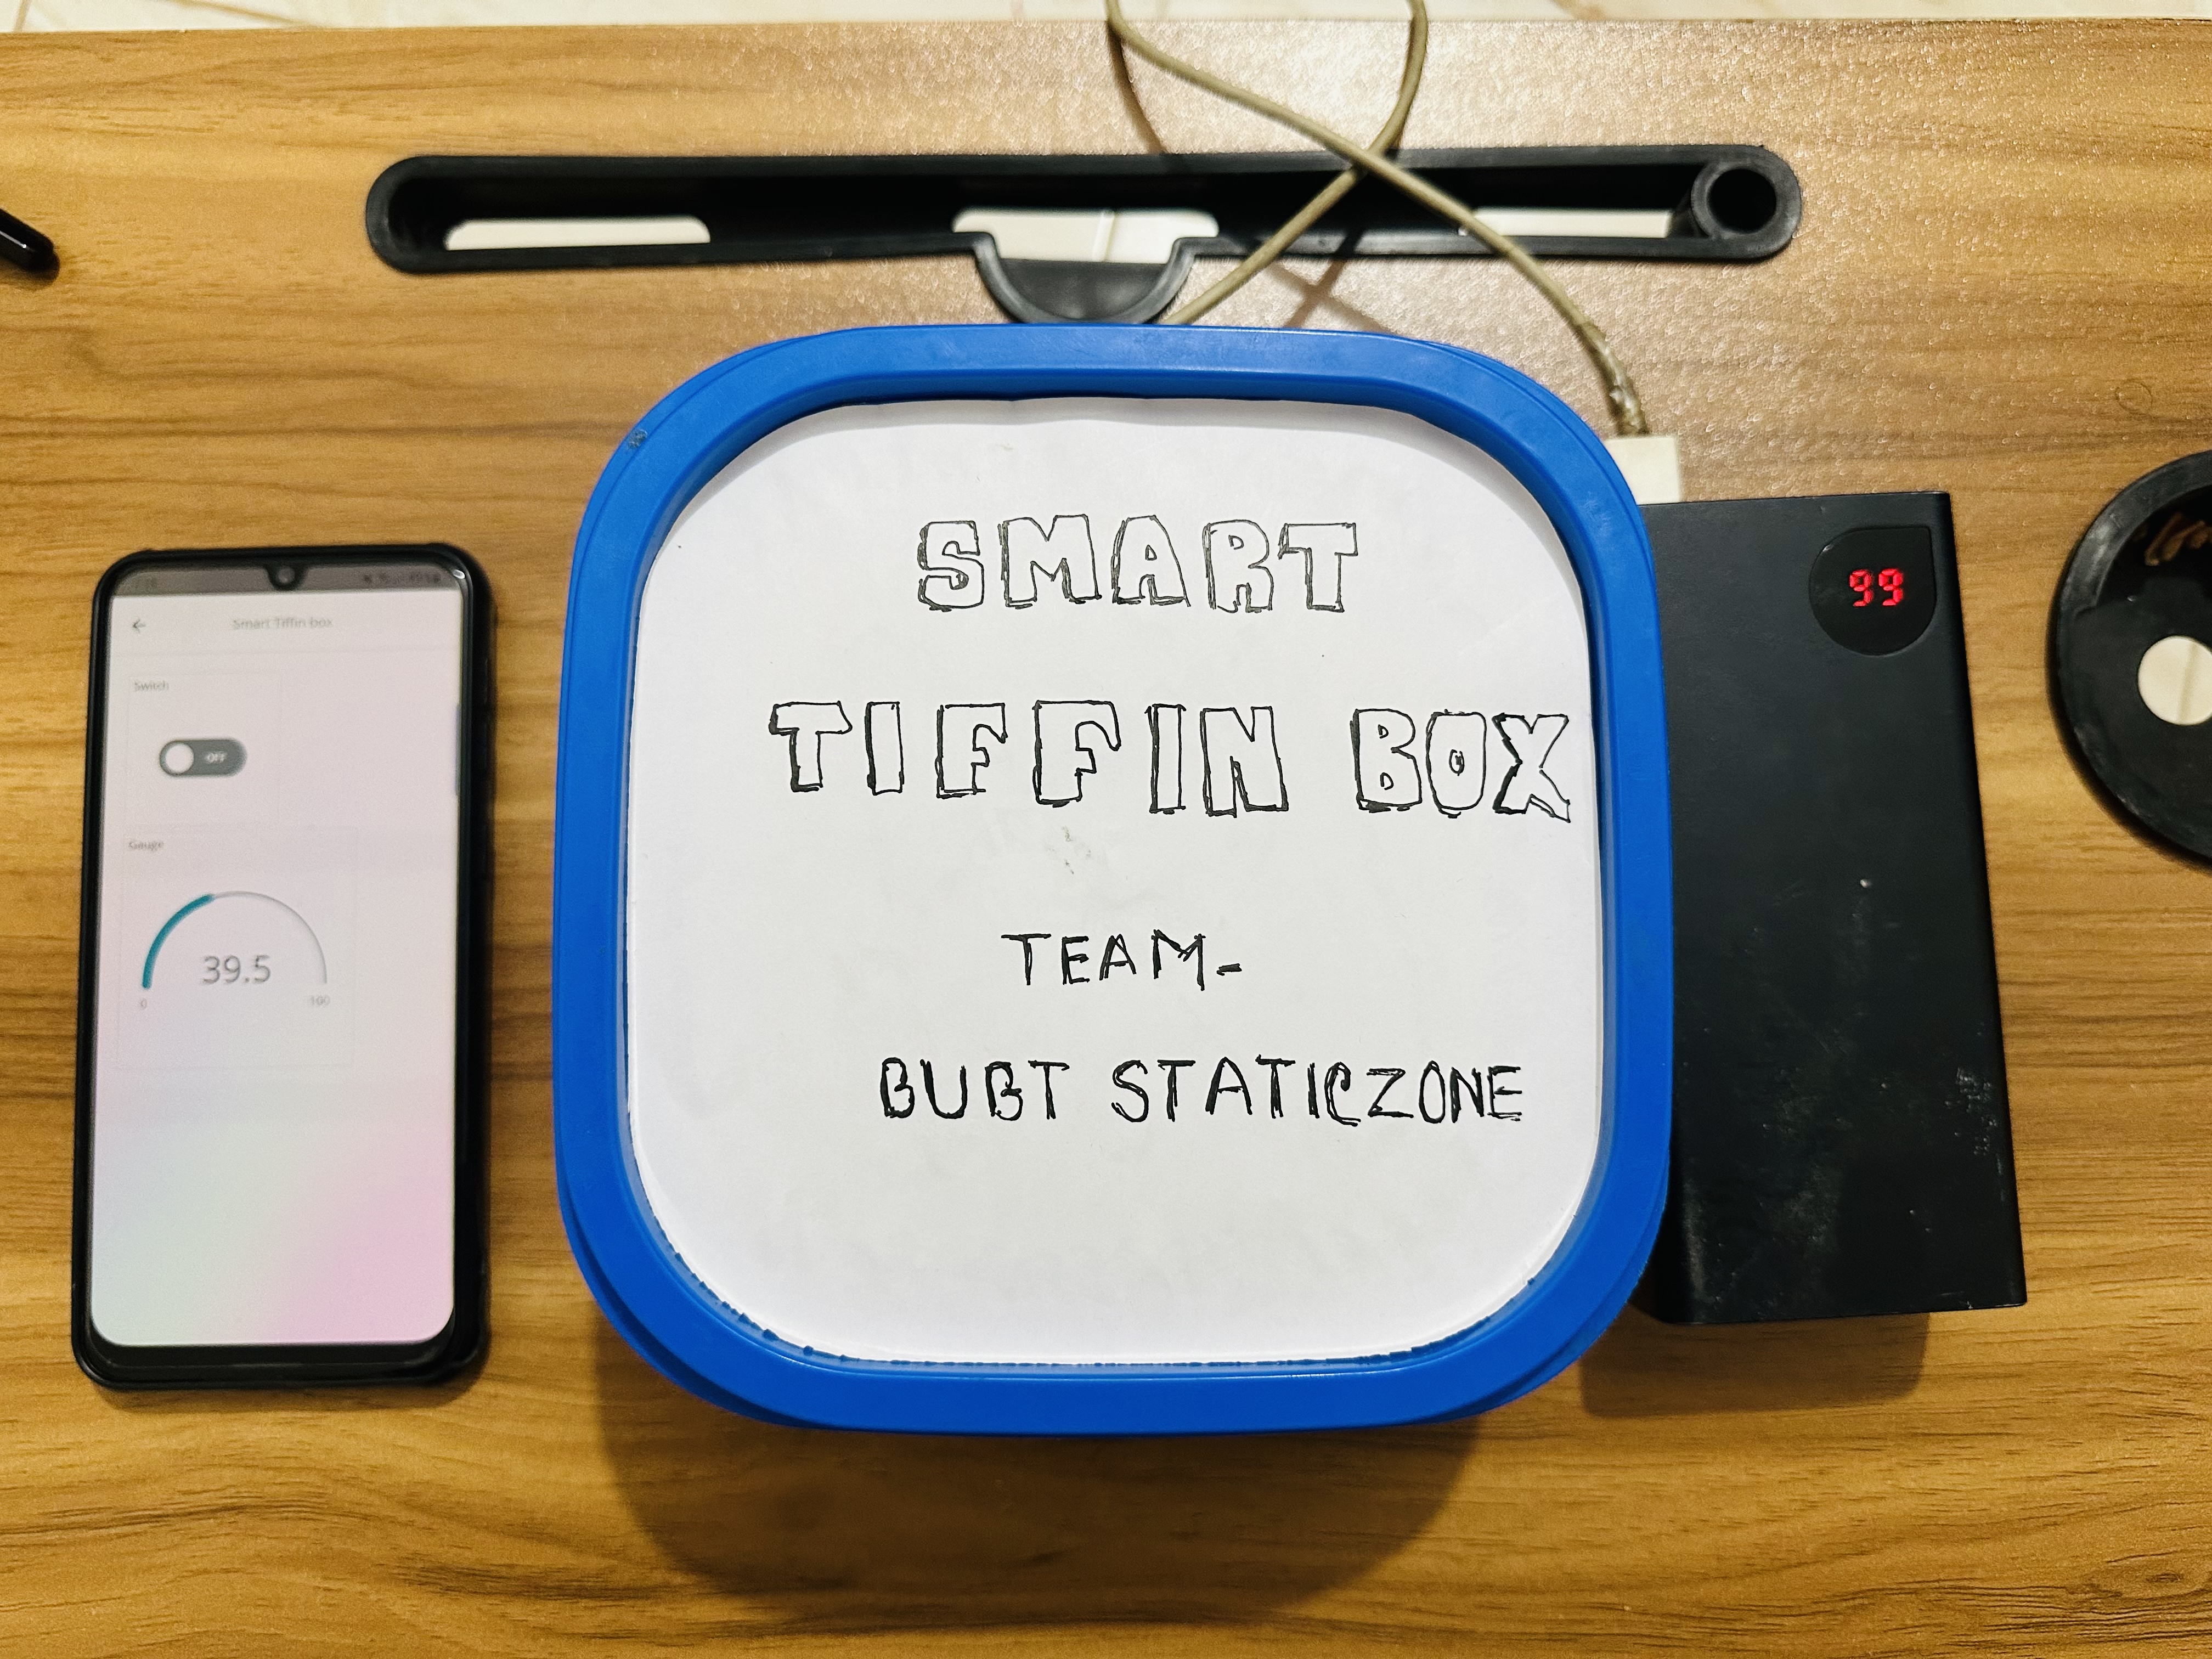 Smart Tiffin box
Switch
OFF
Gauge
39.5
0 100
SMART
TIFFIN BOX
TEAM-
BUBT STATICZONE
99